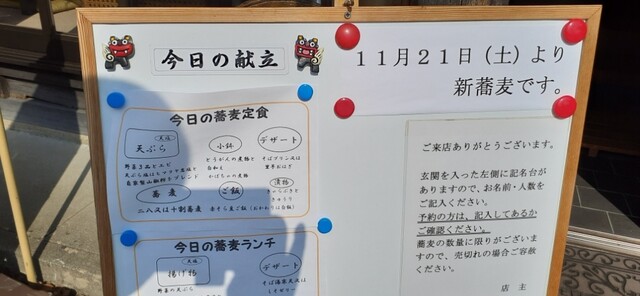 今日の献立
11月21日（土）より
新蕎麦です。
今日の蕎麦定食
天ぷら
小鉢
デザート
蕎麦
ご飯
漬物
二八又は十割蕎麦
今日の蕎麦ランチ
揚げ物
デザート
野菜の天ぷら
ご来店ありがとうございます。
玄関を入った左側に記名台が
ありますので、お名前・人数を
ご記入ください。
予約の方は、記入してあるか
ご確認ください。
蕎麦の数量に限りがございま
すので、売切れの場合ご容赦
ください。
店主